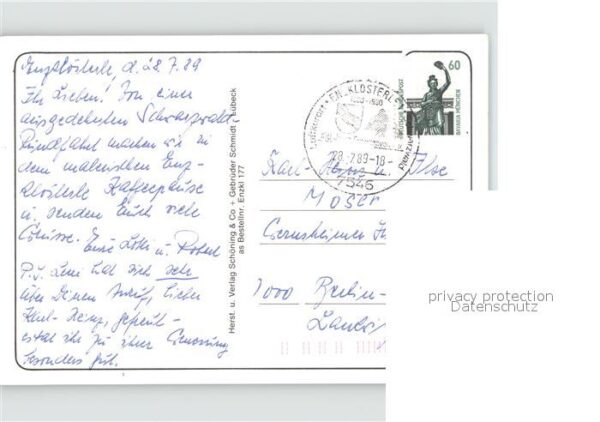 Enzklösterle, d. 28.7.89
Ihr Lieben! Von einer
ausgedehnten Schwarzwald-
Rundfahrt machen wir in
dem malerischen Enz-
klösterle Kaffeepause
u. senden Euch viele
Grüsse. Eure Lotti u. Robert
P.S. hat sich sehr
über Deinen Anruf, lieber
Karl-Heinz, gefreut -
es geht ihr zu ihrer Genesung
besonders gut.
Herst. u. Verlag Schöning & Co + Gebrüder Schmidt, Lübeck
as Bestellnr. Enzkl 177
ENZKLÖSTERLE
28.7.89-18
7546
60
DEUTSCHE BUNDESPOST
BAVARIA MÜNCHEN
Karl-Heinz u. Ilse
Moser
Gernsheimer
1000 Berlin-
privacy protection
Datenschutz